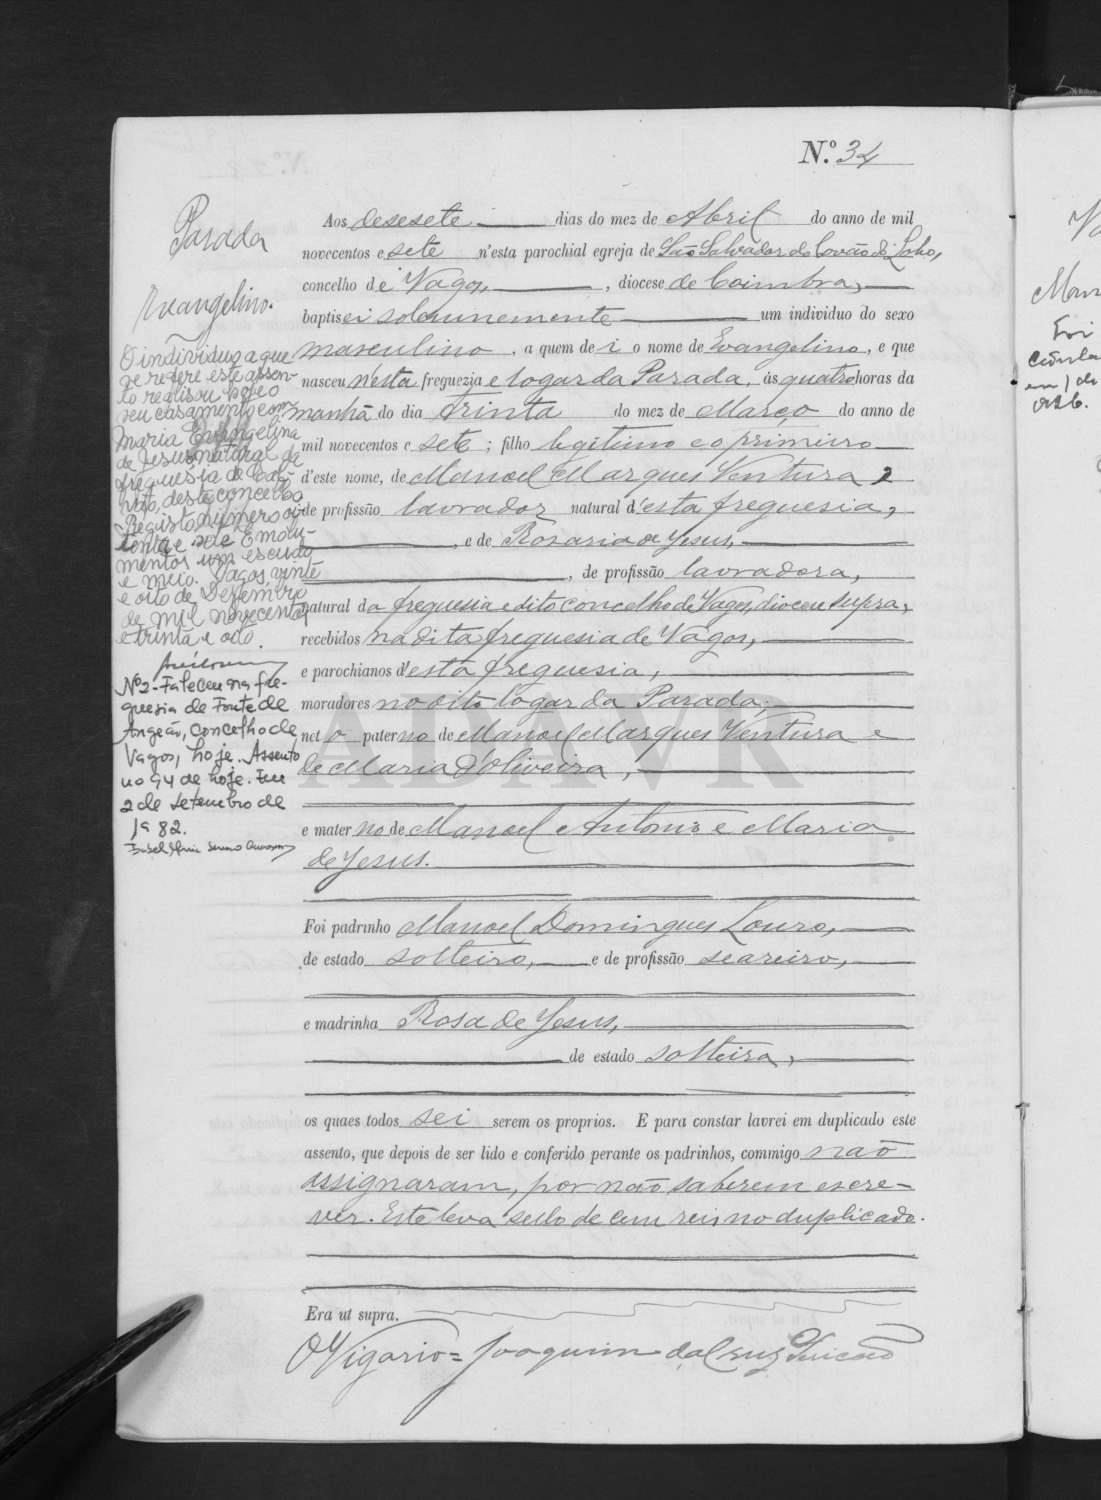 N.º 34
Parada
Evangelino.
O individuo a que
se refere este assen-
to realisou hoje o
seu casamento com
Maria Evangelina
de Jesus natural da
freguesia de
, deste concelho
Registo numero oi-
tenta e sete Emolu-
mentos um escudo
e meio. Vagos, vinte
e oito de Dezembro
de mil novecentos
e trinta e oito.
Nº2 - Faleceu na fre-
guesia de Fonte de
Angeão, concelho de
Vagos, hoje. Assento
nº 94 de hoje. Em
2 de setembro de
1982.
Aos desesete dias do mez de Abril do anno de mil
novecentos e sete n'esta parochial egreja de São Salvador do Covão do Lobo,
concelho de Vagos, , diocese de Coimbra,
baptisei solemnemente um individuo do sexo
masculino , a quem dei o nome de Evangelino, e que
nasceu n'esta freguezia e logar da Parada, ás quatro horas da
manhã do dia trinta do mez de Março do anno de
mil novecentos e sete ; filho legitimo e o primeiro
d'este nome, de Manoel Marques Ventura,
de profissão lavrador natural d'esta freguesia,
, e de Rosaria de Jesus,
, de profissão lavradora,
natural da freguesia e dito concelho de Vagos, diocese supra,
recebidos na dita freguesia de Vagos,
e parochianos d'esta freguesia,
moradores no dito logar da Parada,
neto paterno de Manoel Marques Ventura e
de Maria d'Oliveira,
e materno de Manoel Antonio e Maria
de Jesus.
Foi padrinho Manoel Domingues Louro,
de estado solteiro, e de profissão seareiro,
e madrinha Rosa de Jesus,
de estado solteira,
os quaes todos sei serem os proprios. E para constar lavrei em duplicado este
assento, que depois de ser lido e conferido perante os padrinhos, commigo não
assignaram, por não saberem escre-
ver. Este leva sello de cem reis no duplicado.
Era ut supra.
O Vigario = Joaquim da Cruz
ADAVR